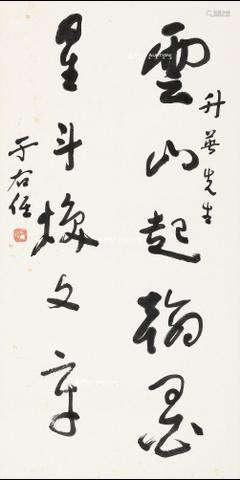 升華先生
雲山起翰墨
星斗煥文章
于右任